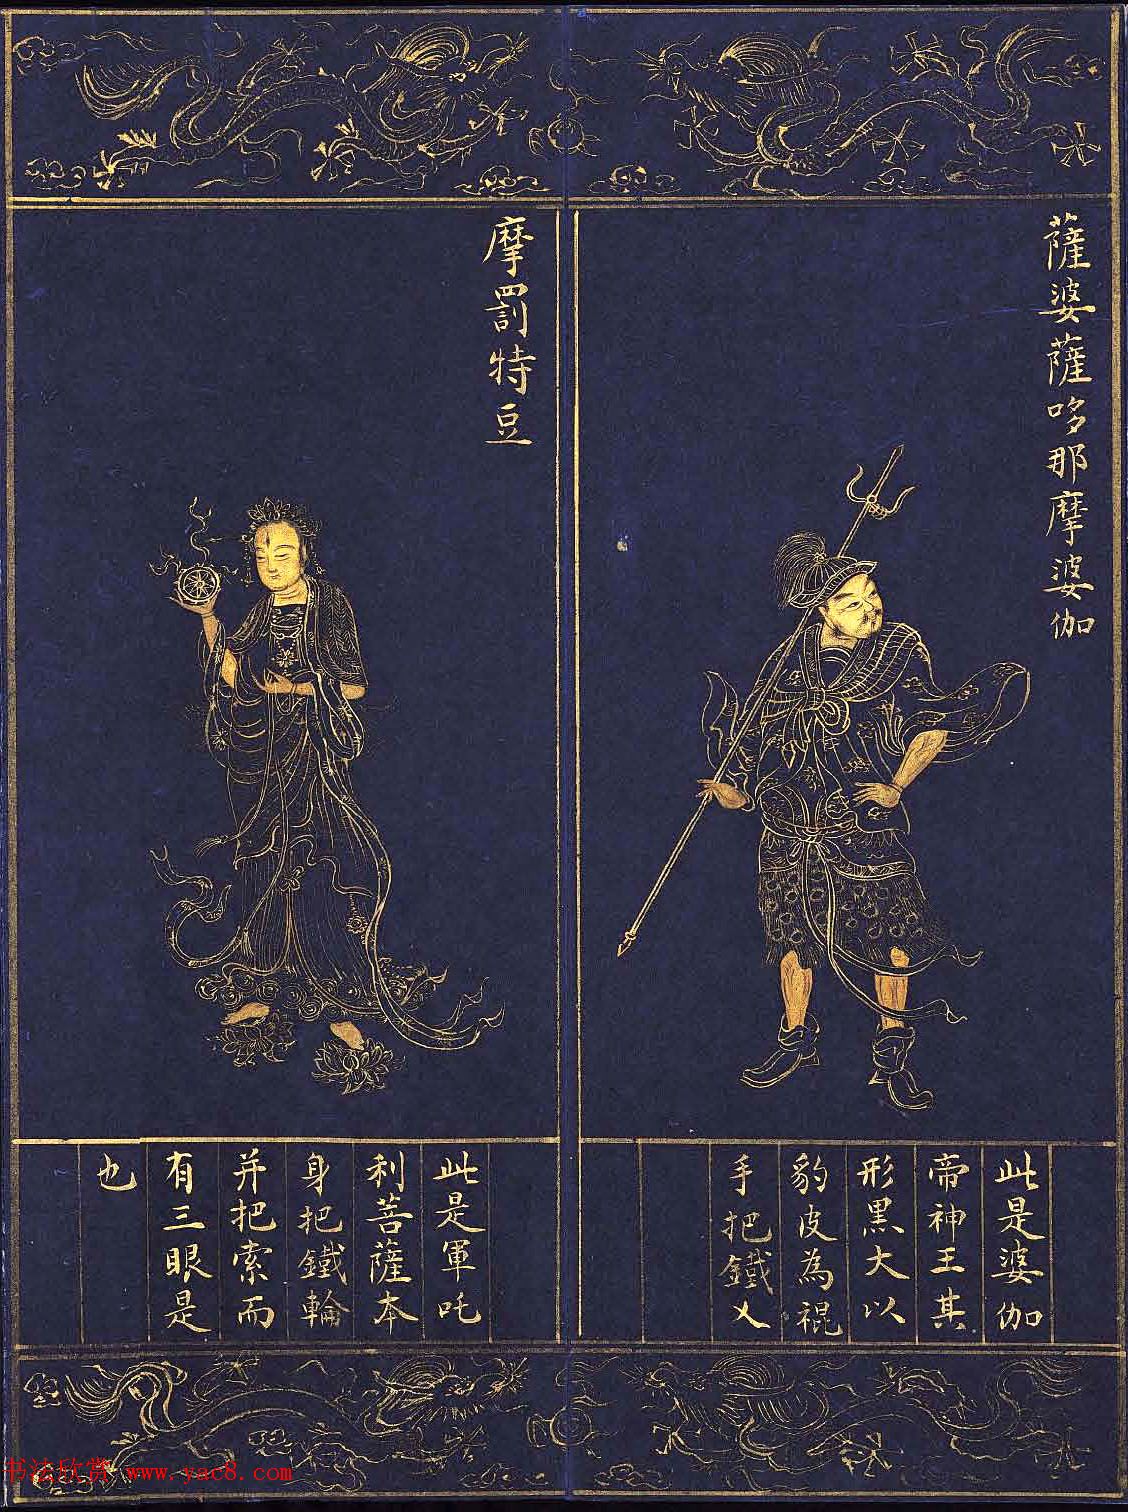 薩婆薩哆那摩婆伽
此是婆伽
帝神王其
形黒大以
豹皮為裩
手把鐵乂
摩罰特豆
此是軍吒
利菩薩本
身把鐵輪
并把索而
有三眼是
也
书法欣赏 www.yac8.com